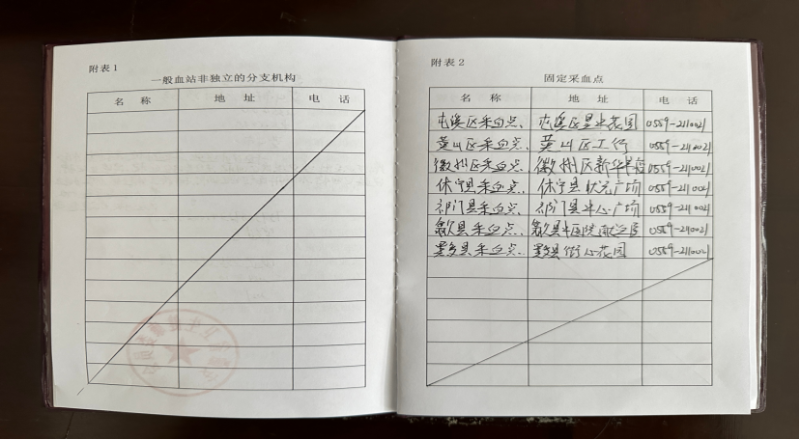 附表1
一般血站非独立的分支机构
名 称 地 址 电 话
附表2
固定采血点
名 称 地 址 电 话
屯溪区采血点 屯溪区 花园 0559-2110021
黄山区采血点 黄山区工行 0559-2110021
徽州区采血点 徽州区新华书店 0559-2110021
休宁县采血点 休宁县状元广场 0559-2110021
祁门县采血点 祁门县中心广场 0559-2110021
歙县采血点 歙县中医院 0559-2110021
黟县采血点 黟县街心花园 0559-2110021